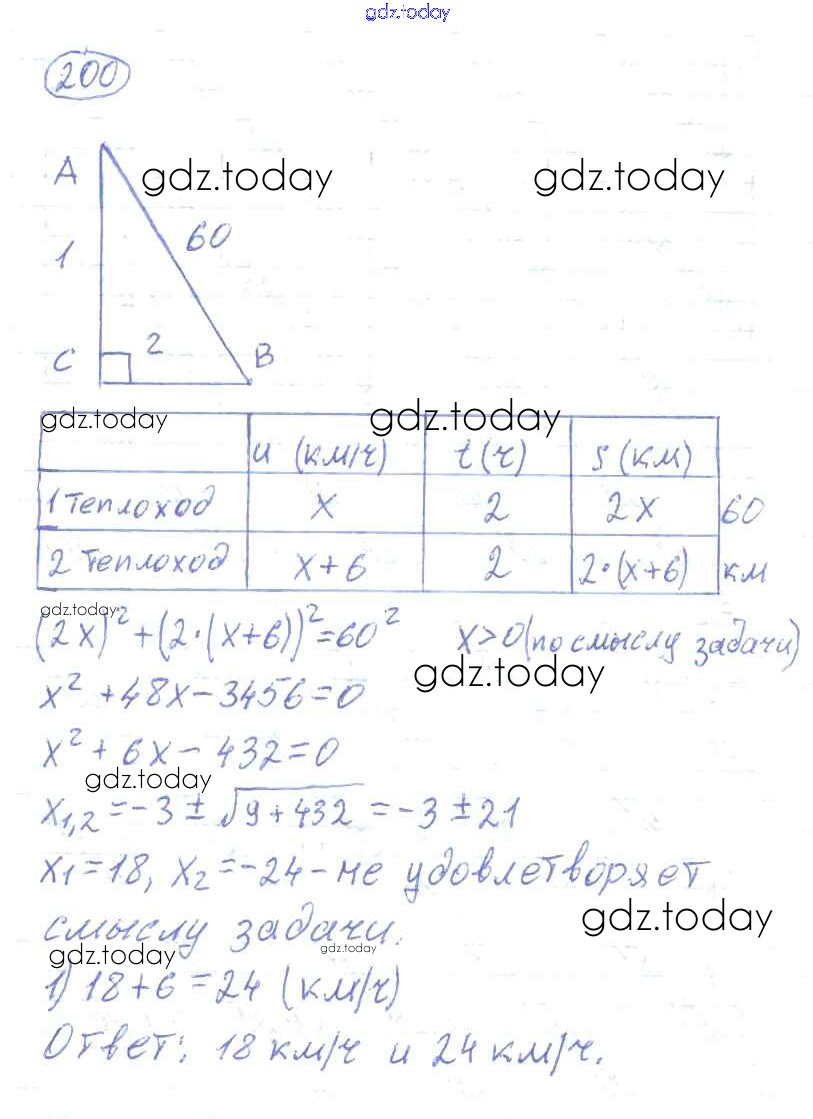 gdz.today
200
A
gdz.today
gdz.today
60
1
2
C
B
gdz.today
gdz.today
u (км/ч) t(ч) S(км)
1 теплоход x 2 2x 60
2 теплоход x+6 2 2·(x+6) км
gdz.today
(2x)²+(2·(x+6))²=60² x>0(по смыслу задачи)
gdz.today
x²+48x-3456=0
x²+6x-432=0
gdz.today
x₁,₂=-3±√9+432=-3±21
x₁=18, x₂=-24-не удовлетворяет
gdz.today
смыслу задачи.
gdz.today
gdz.today
1) 18+6=24 (км/ч)
Ответ: 18 км/ч и 24 км/ч.